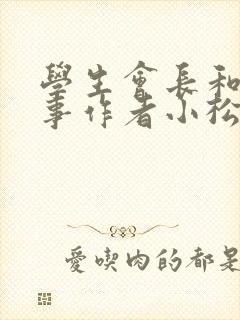 學生會長和
事作者小松
愛喫肉的都是